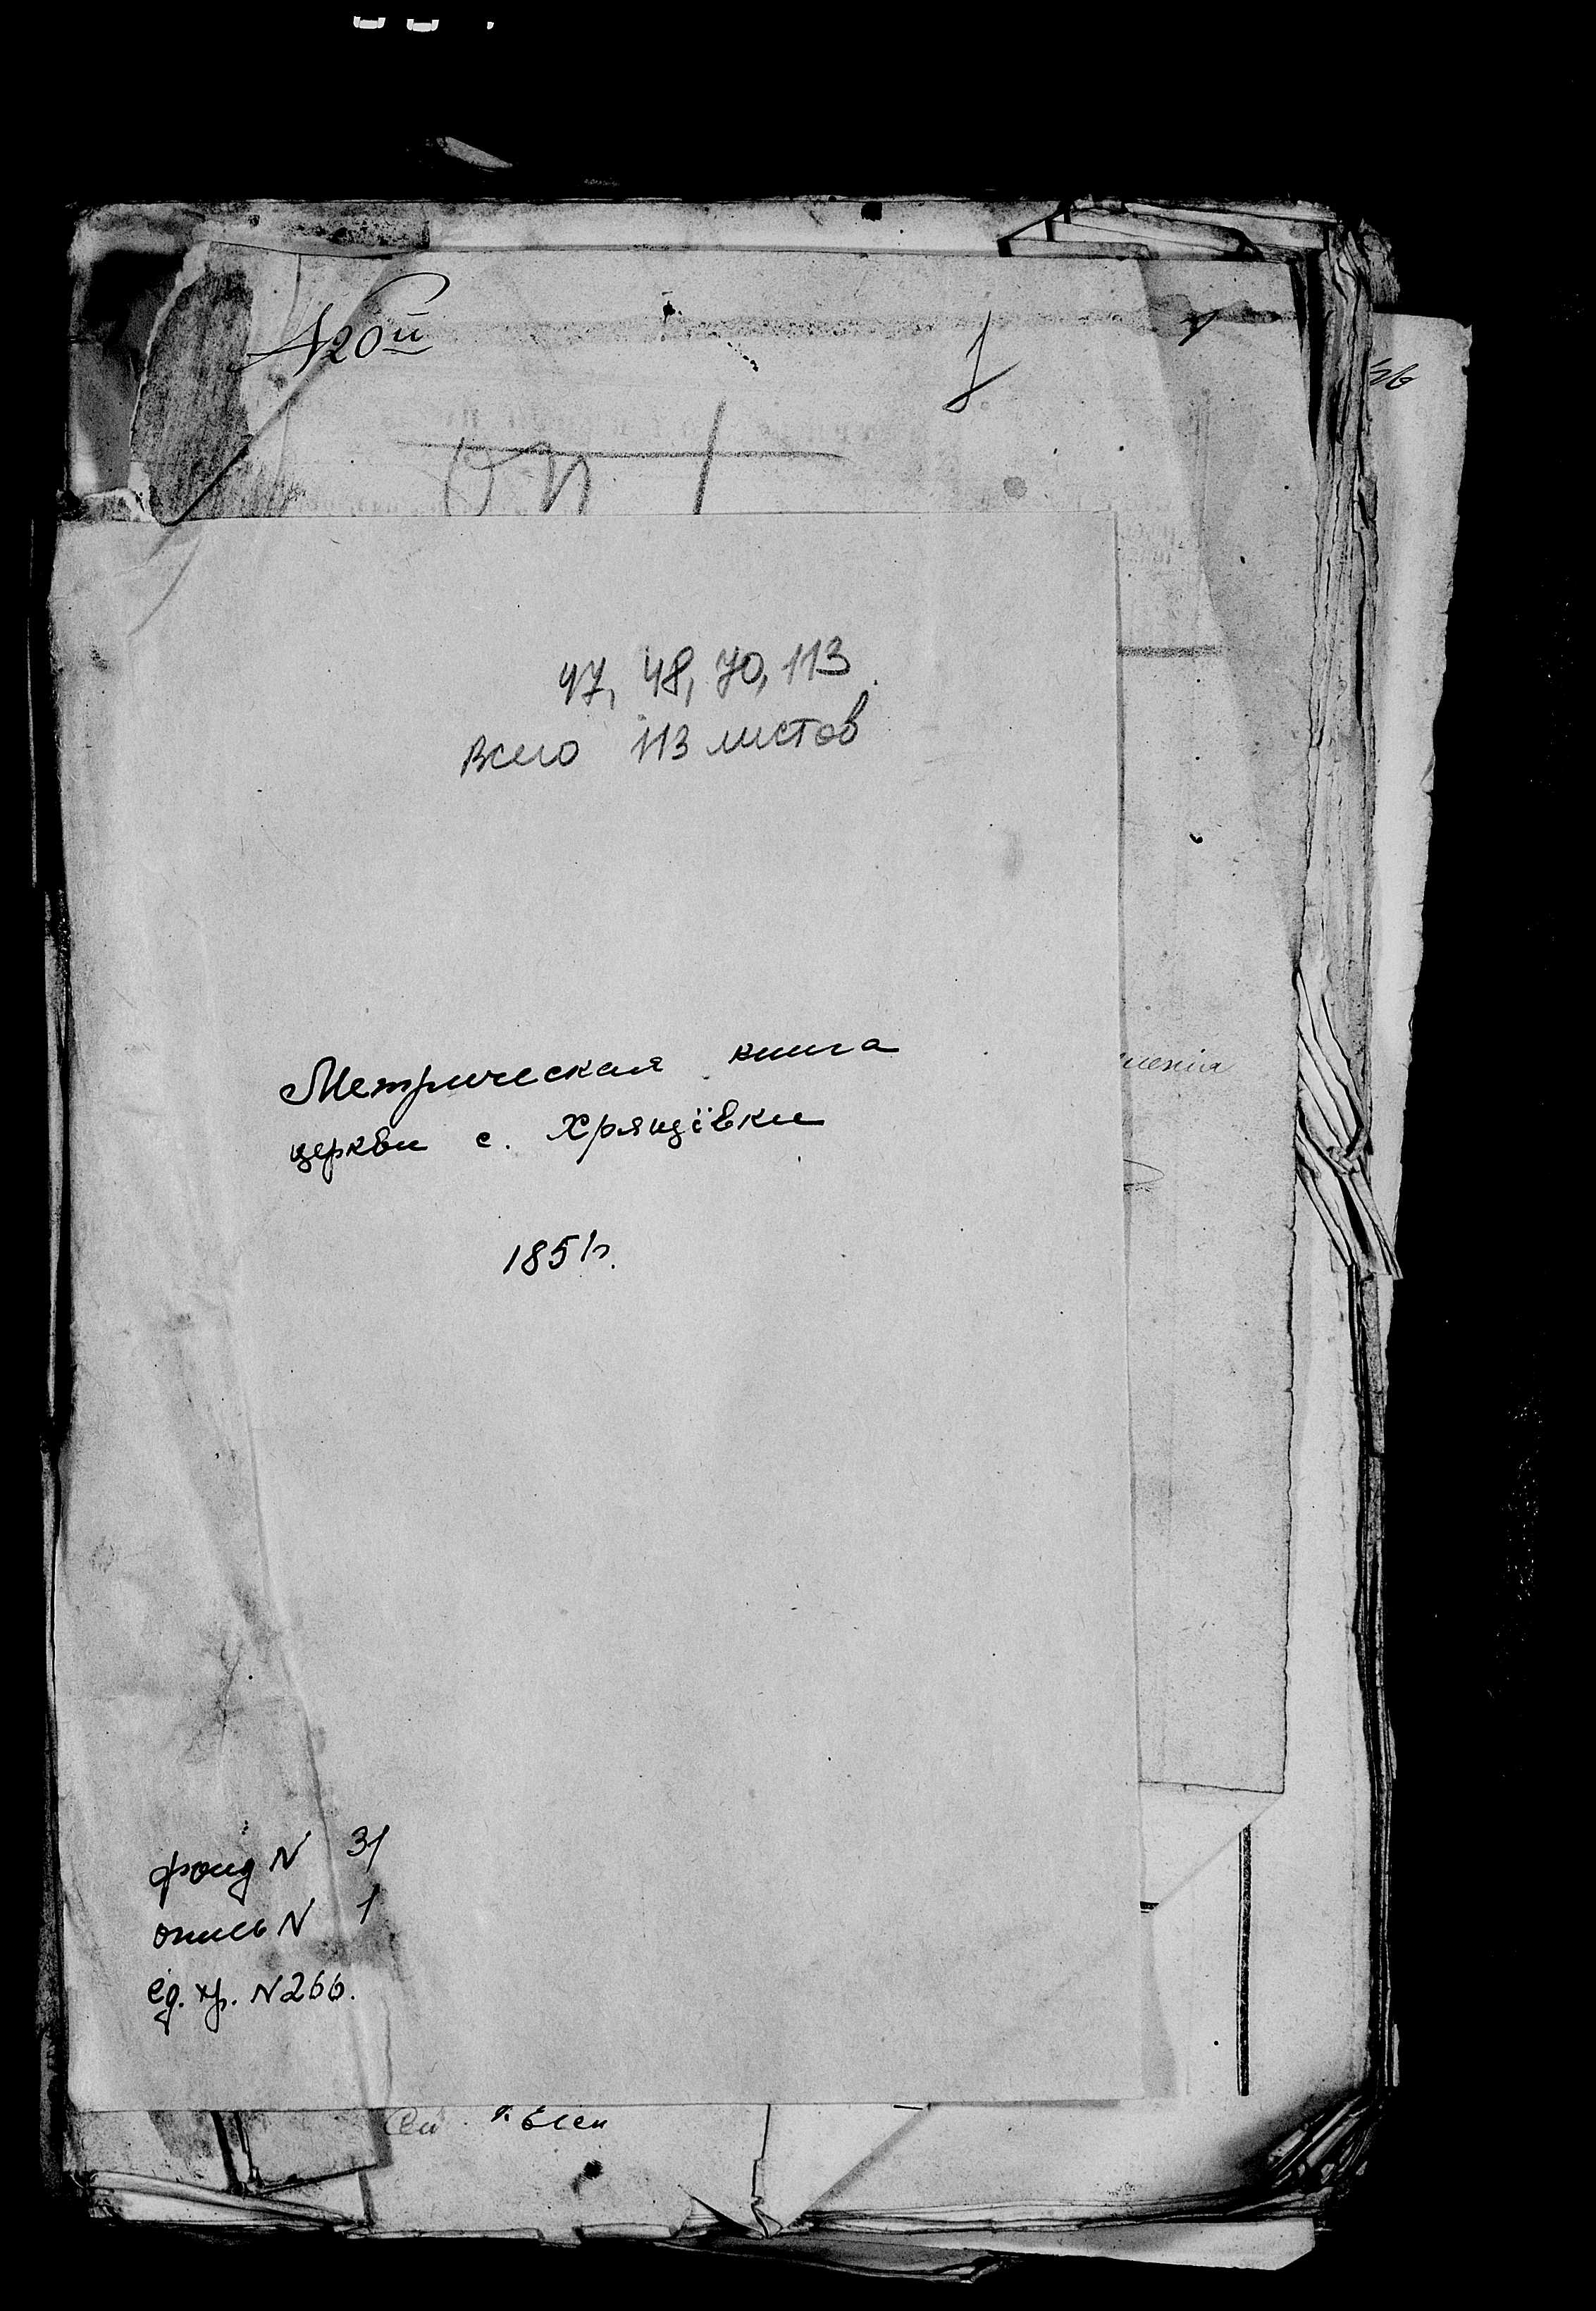 № 20й
1
оп 1
47, 48, 70, 113
Всего 113 листов
Метрическая книга
церкви с. Хрящівки
1851г.
фонд N 31
опись N 1
ед. хр. N 266.